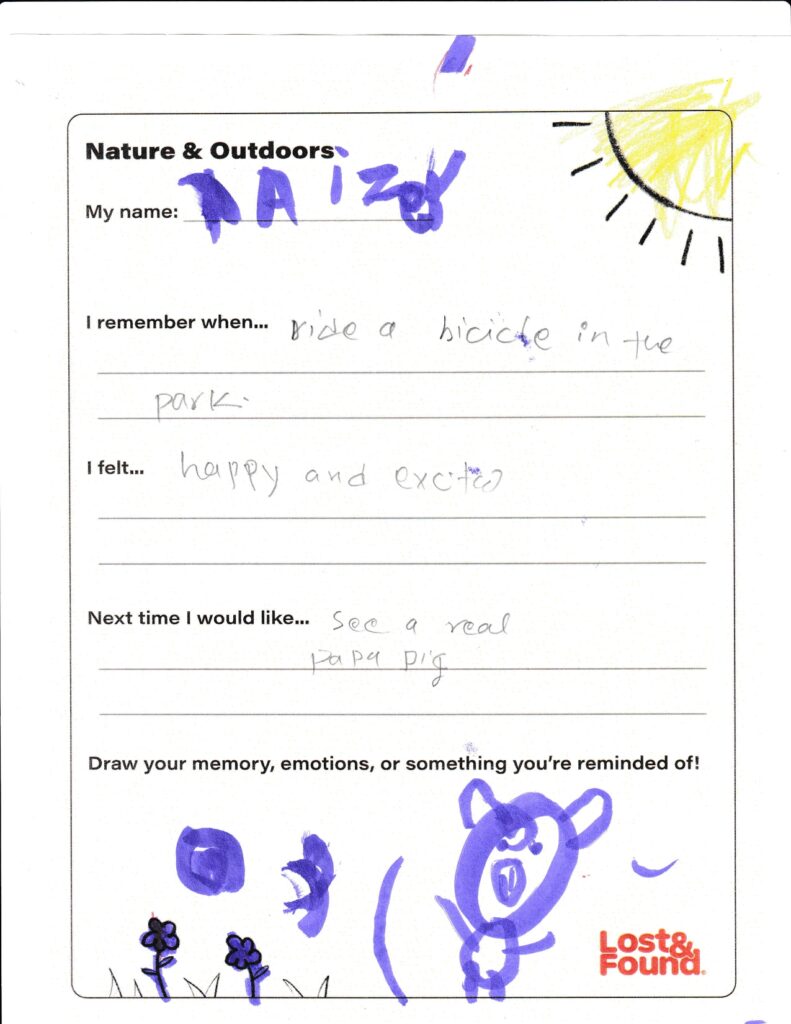 Nature & Outdoors
My name:
I remember when... ride a bicicle in the
park.
I felt... happy and excited
Next time I would like... see a real
papa pig
Draw your memory, emotions, or something you're reminded of!
Lost&
Found